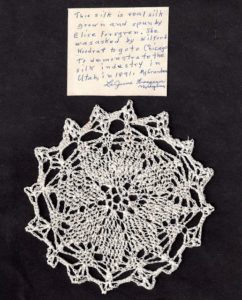 This silk is real silk
grown and spun by
Elise Forsgren. She
was asked by Wilford
Woodruf to go to Chicago
To demonstrate the
silk indestry in
Utah, in 1891. My Grandma